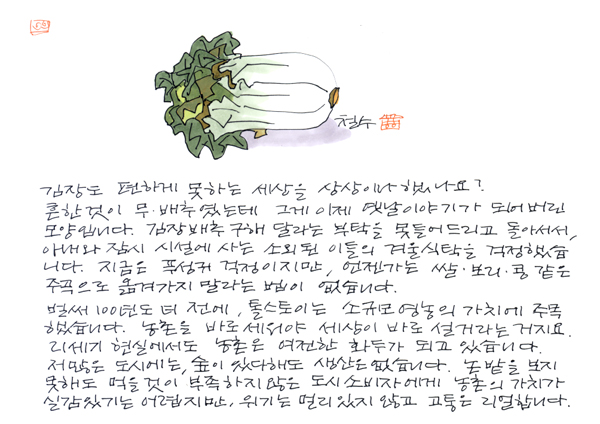 철수
김장도 편하게 못하는 세상을 상상이나 했나요?
흔한것이 무·배추였는데 그게 이제 옛날이야기가 되어버린
모양입니다. 김장배추 구해 달라는 부탁을 못들어드리고 돌아서서,
아내와 잠시 시설에 사는 소외된 이들의 겨울식탁을 걱정했습
니다. 지금은 푸성귀 걱정이지만, 언젠가는 쌀·보리·콩 같은
주곡으로 옮겨가지 말라는 법이 없습니다.
벌써 100년도 더 전에, 톨스토이는 소규모 영농의 가치에 주목
했습니다. 농촌을 바로세워야 세상이 바로 설거라는 거지요.
21세기 현실에서도 농촌은 여전한 화두가 되고 있습니다.
저많은 도시에는, 숲이 있다해도 생산은 없습니다. 논밭을 보지
못해도 먹을것이 부족하지 않은 도시소비자에게 농촌의 가치가
실감있기는 어렵지만, 위기는 멀리있지 않고 고통은 리얼합니다.